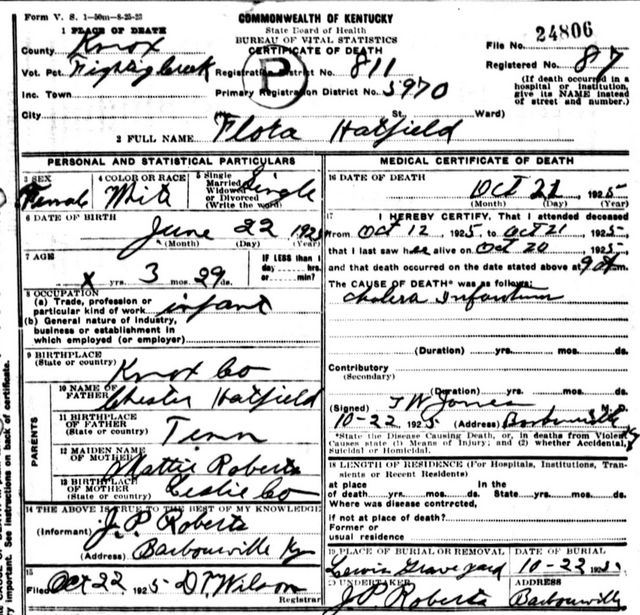 Form V. S. 1-50m-8-25-23
COMMONWEALTH OF KENTUCKY
State Board of Health
BUREAU OF VITAL STATISTICS
CERTIFICATE OF DEATH
24806
1 PLACE OF DEATH
County Knox
File No.
Registered No. 87
Vot. Pct.
Registration District No. 811
(If death occurred in a hospital or institution, give its NAME instead of street and number.)
Inc. Town
Primary Registration District No. 5970
City (No. St. Ward)
2 FULL NAME Flora Hatfield
PERSONAL AND STATISTICAL PARTICULARS
3 SEX Female
4 COLOR OR RACE White
5 Single Married Widowed or Divorced (Write the word) Single
6 DATE OF BIRTH June 22 1925
(Month) (Day) (Year)
7 AGE x yrs. 3 mos. 29 ds.
IF LESS than 1 day hrs. or min.?
8 OCCUPATION
(a) Trade, profession or particular kind of work infant
(b) General nature of industry, business or establishment in which employed (or employer)
9 BIRTHPLACE (State or country) Knox Co
PARENTS
10 NAME OF FATHER Chester Hatfield
11 BIRTHPLACE OF FATHER (State or country) Tenn
12 MAIDEN NAME OF MOTHER Mattie Roberts
13 BIRTHPLACE OF MOTHER (State or country) Leslie Co
14 THE ABOVE IS TRUE TO THE BEST OF MY KNOWLEDGE
(Informant) J.P. Roberts
(Address) Barbourville Ky
15
Filed Oct 22 1925 D.T. Wilson
Registrar
MEDICAL CERTIFICATE OF DEATH
16 DATE OF DEATH Oct 21 1925
(Month) (Day) (Year)
17 I HEREBY CERTIFY, That I attended deceased
from Oct 12 1925 to Oct 21 1925
that I last saw her alive on Oct 20 1925
and that death occurred on the date stated above at
The CAUSE OF DEATH* was as follows:
Cholera Infantum
(Duration) yrs. mos. ds.
Contributory
(Secondary)
(Duration) yrs. mos. ds.
(Signed) T W Jones M.D.
10-22 1925 (Address) Barbourville
*State the Disease Causing Death, or, in deaths from Violent Causes state (1) Means of Injury; and (2) whether Accidental, Suicidal or Homicidal.
18 LENGTH OF RESIDENCE (For Hospitals, Institutions, Transients or Recent Residents)
at place of death yrs. mos. ds. In the State yrs. mos. ds.
Where was disease contrrcted,
if not at place of death?
Former or usual residence
19 PLACE OF BURIAL OR REMOVAL DATE OF BURIAL
Lewis Grave yard 10-22 1925
20 UNDERTAKER ADDRESS
J P Roberts Barbourville
important. See instructions on back of certificate.